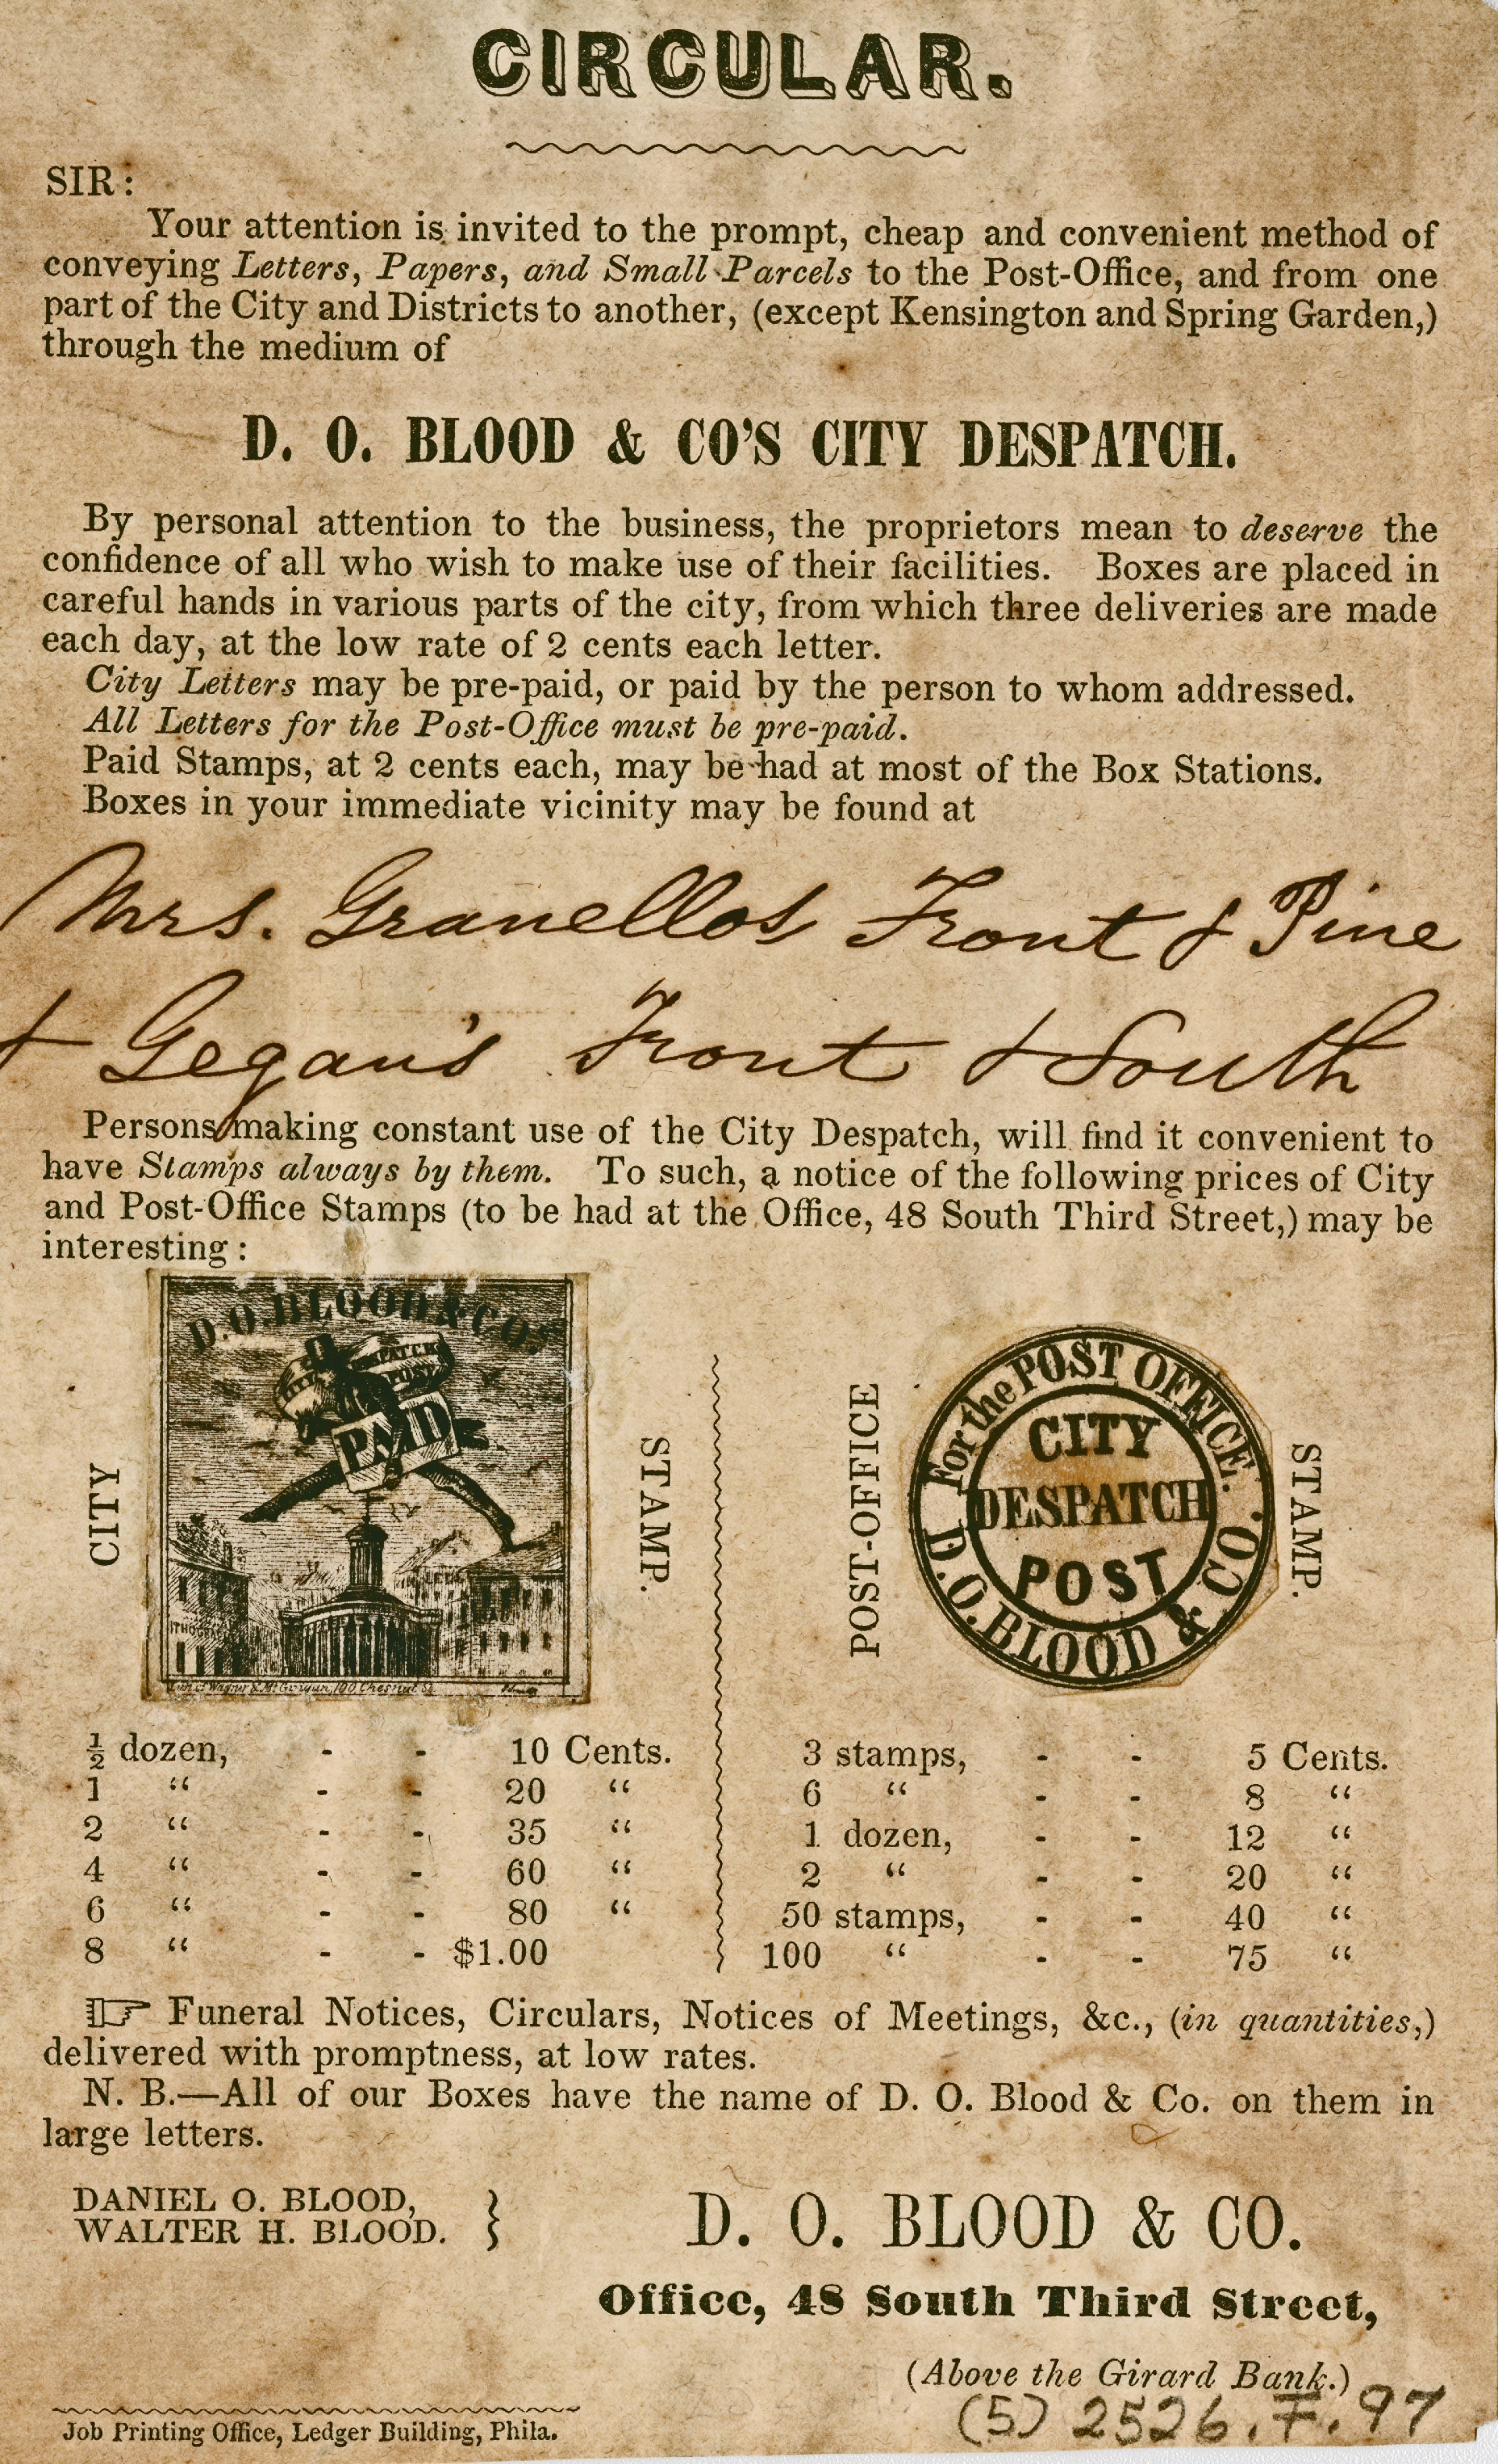 CIRCULAR.
SIR:
Your attention is invited to the prompt, cheap and convenient method of
conveying Letters, Papers, and Small Parcels to the Post-Office, and from one
part of the City and Districts to another, (except Kensington and Spring Garden,)
through the medium of
D. O. BLOOD & CO'S CITY DESPATCH.
By personal attention to the business, the proprietors mean to deserve the
confidence of all who wish to make use of their facilities. Boxes are placed in
careful hands in various parts of the city, from which three deliveries are made
each day, at the low rate of 2 cents each letter.
City Letters may be pre-paid, or paid by the person to whom addressed.
All Letters for the Post-Office must be pre-paid.
Paid Stamps, at 2 cents each, may be had at most of the Box Stations.
Boxes in your immediate vicinity may be found at
Mrs. Granellos Front & Pine
& Gegan's Front & South
Persons making constant use of the City Despatch, will find it convenient to
have Stamps always by them. To such, a notice of the following prices of City
and Post-Office Stamps (to be had at the Office, 48 South Third Street,) may be
interesting:
CITY
D.O.BLOOD & CO'S
CITY DESPATCH
POST
PAID
STAMP.
POST-OFFICE
For the POST OFFICE.
CITY
DESPATCH
POST
D.O.BLOOD & CO.
STAMP.
½ dozen, - - 10 Cents.
1 “ - - 20 “
2 “ - - 35 “
4 “ - - 60 “
6 “ - - 80 “
8 “ - - $1.00
3 stamps, - - 5 Cents.
6 “ - - 8 “
1 dozen, - - 12 “
2 “ - - 20 “
50 stamps, - - 40 “
100 “ - - 75 “
☞ Funeral Notices, Circulars, Notices of Meetings, &c., (in quantities,)
delivered with promptness, at low rates.
N. B.—All of our Boxes have the name of D. O. Blood & Co. on them in
large letters.
DANIEL O. BLOOD,
WALTER H. BLOOD. }
D. O. BLOOD & CO.
Office, 48 South Third Street,
(Above the Girard Bank.)
(5) 2526.F.97
Job Printing Office, Ledger Building, Phila.